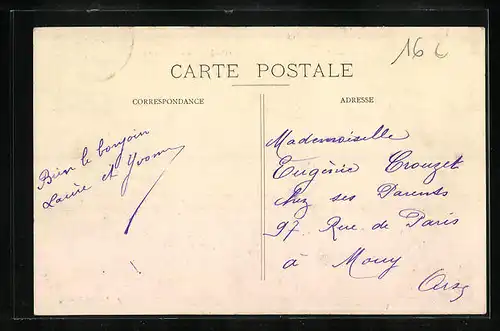 16 c
CARTE POSTALE
CORRESPONDANCE
ADRESSE
Bien le bonjoin
et Yvonne
Mademoiselle
Eugènie Crouzet
chez ses Parents
97 Rue de Paris
à Mouy